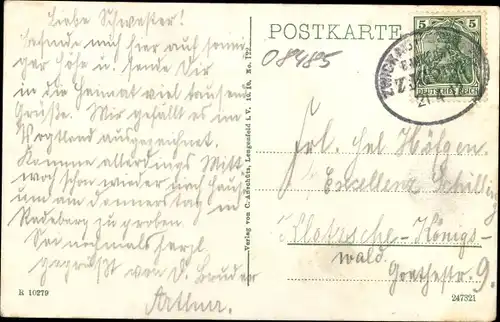 Liebe Schwester!
Befinde mich hier auf sonni-
ger Höhe u. sende Dir
in die Heimat viel tausend
Grüße. Mir gefällt es im
Vogtland ausgezeichnet.
Komme allerdings Mitt-
woch schon wieder nach Haus
um am Donnerstag in
Radeburg zu proben.
Sei nochmals herzl.
gegrüßt von D. Bruder
Arthur.
R 10279
Verlag von C. Anschütz, Lengenfeld i. V. No. 172
POSTKARTE
08485
5 5
DEUTSCHES REICH
ZWICKAU
Frl. Hel Höfgen
Exzellenz Schilling
Klotzsche-Königs-
wald.
Goethestr. 9.
247321